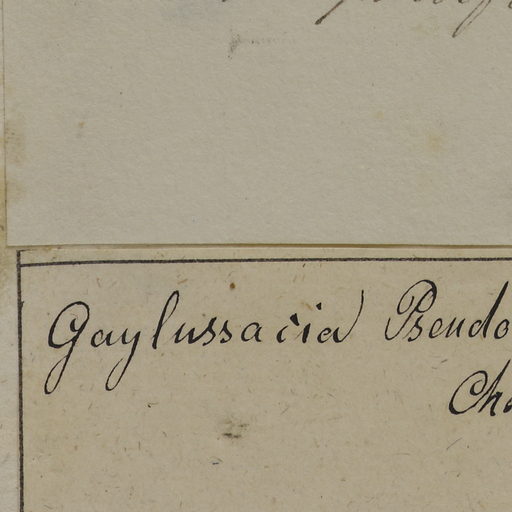 Gaylussacia Pseudo
Cha